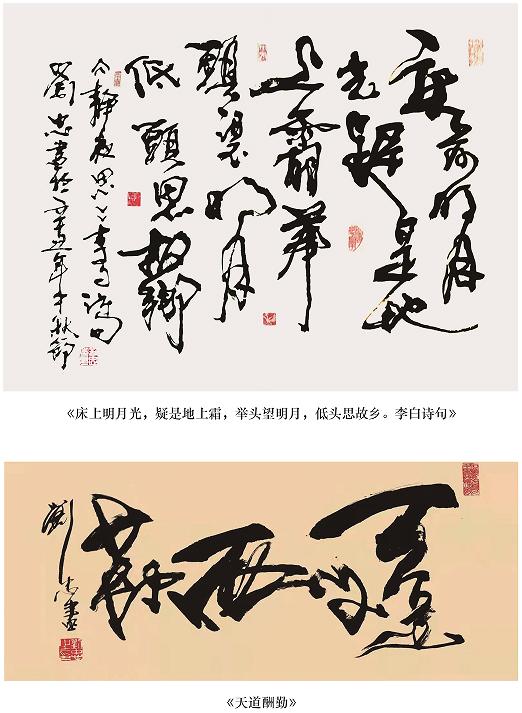 床前明月
光疑是地
上霜舉
頭望明月
低頭思故鄉
《靜夜思》李白诗句
劉忠書於辛丑年中秋節
《床上明月光，疑是地上霜，举头望明月，低头思故乡。李白诗句》
天道酬勤
劉忠書
《天道酬勤》